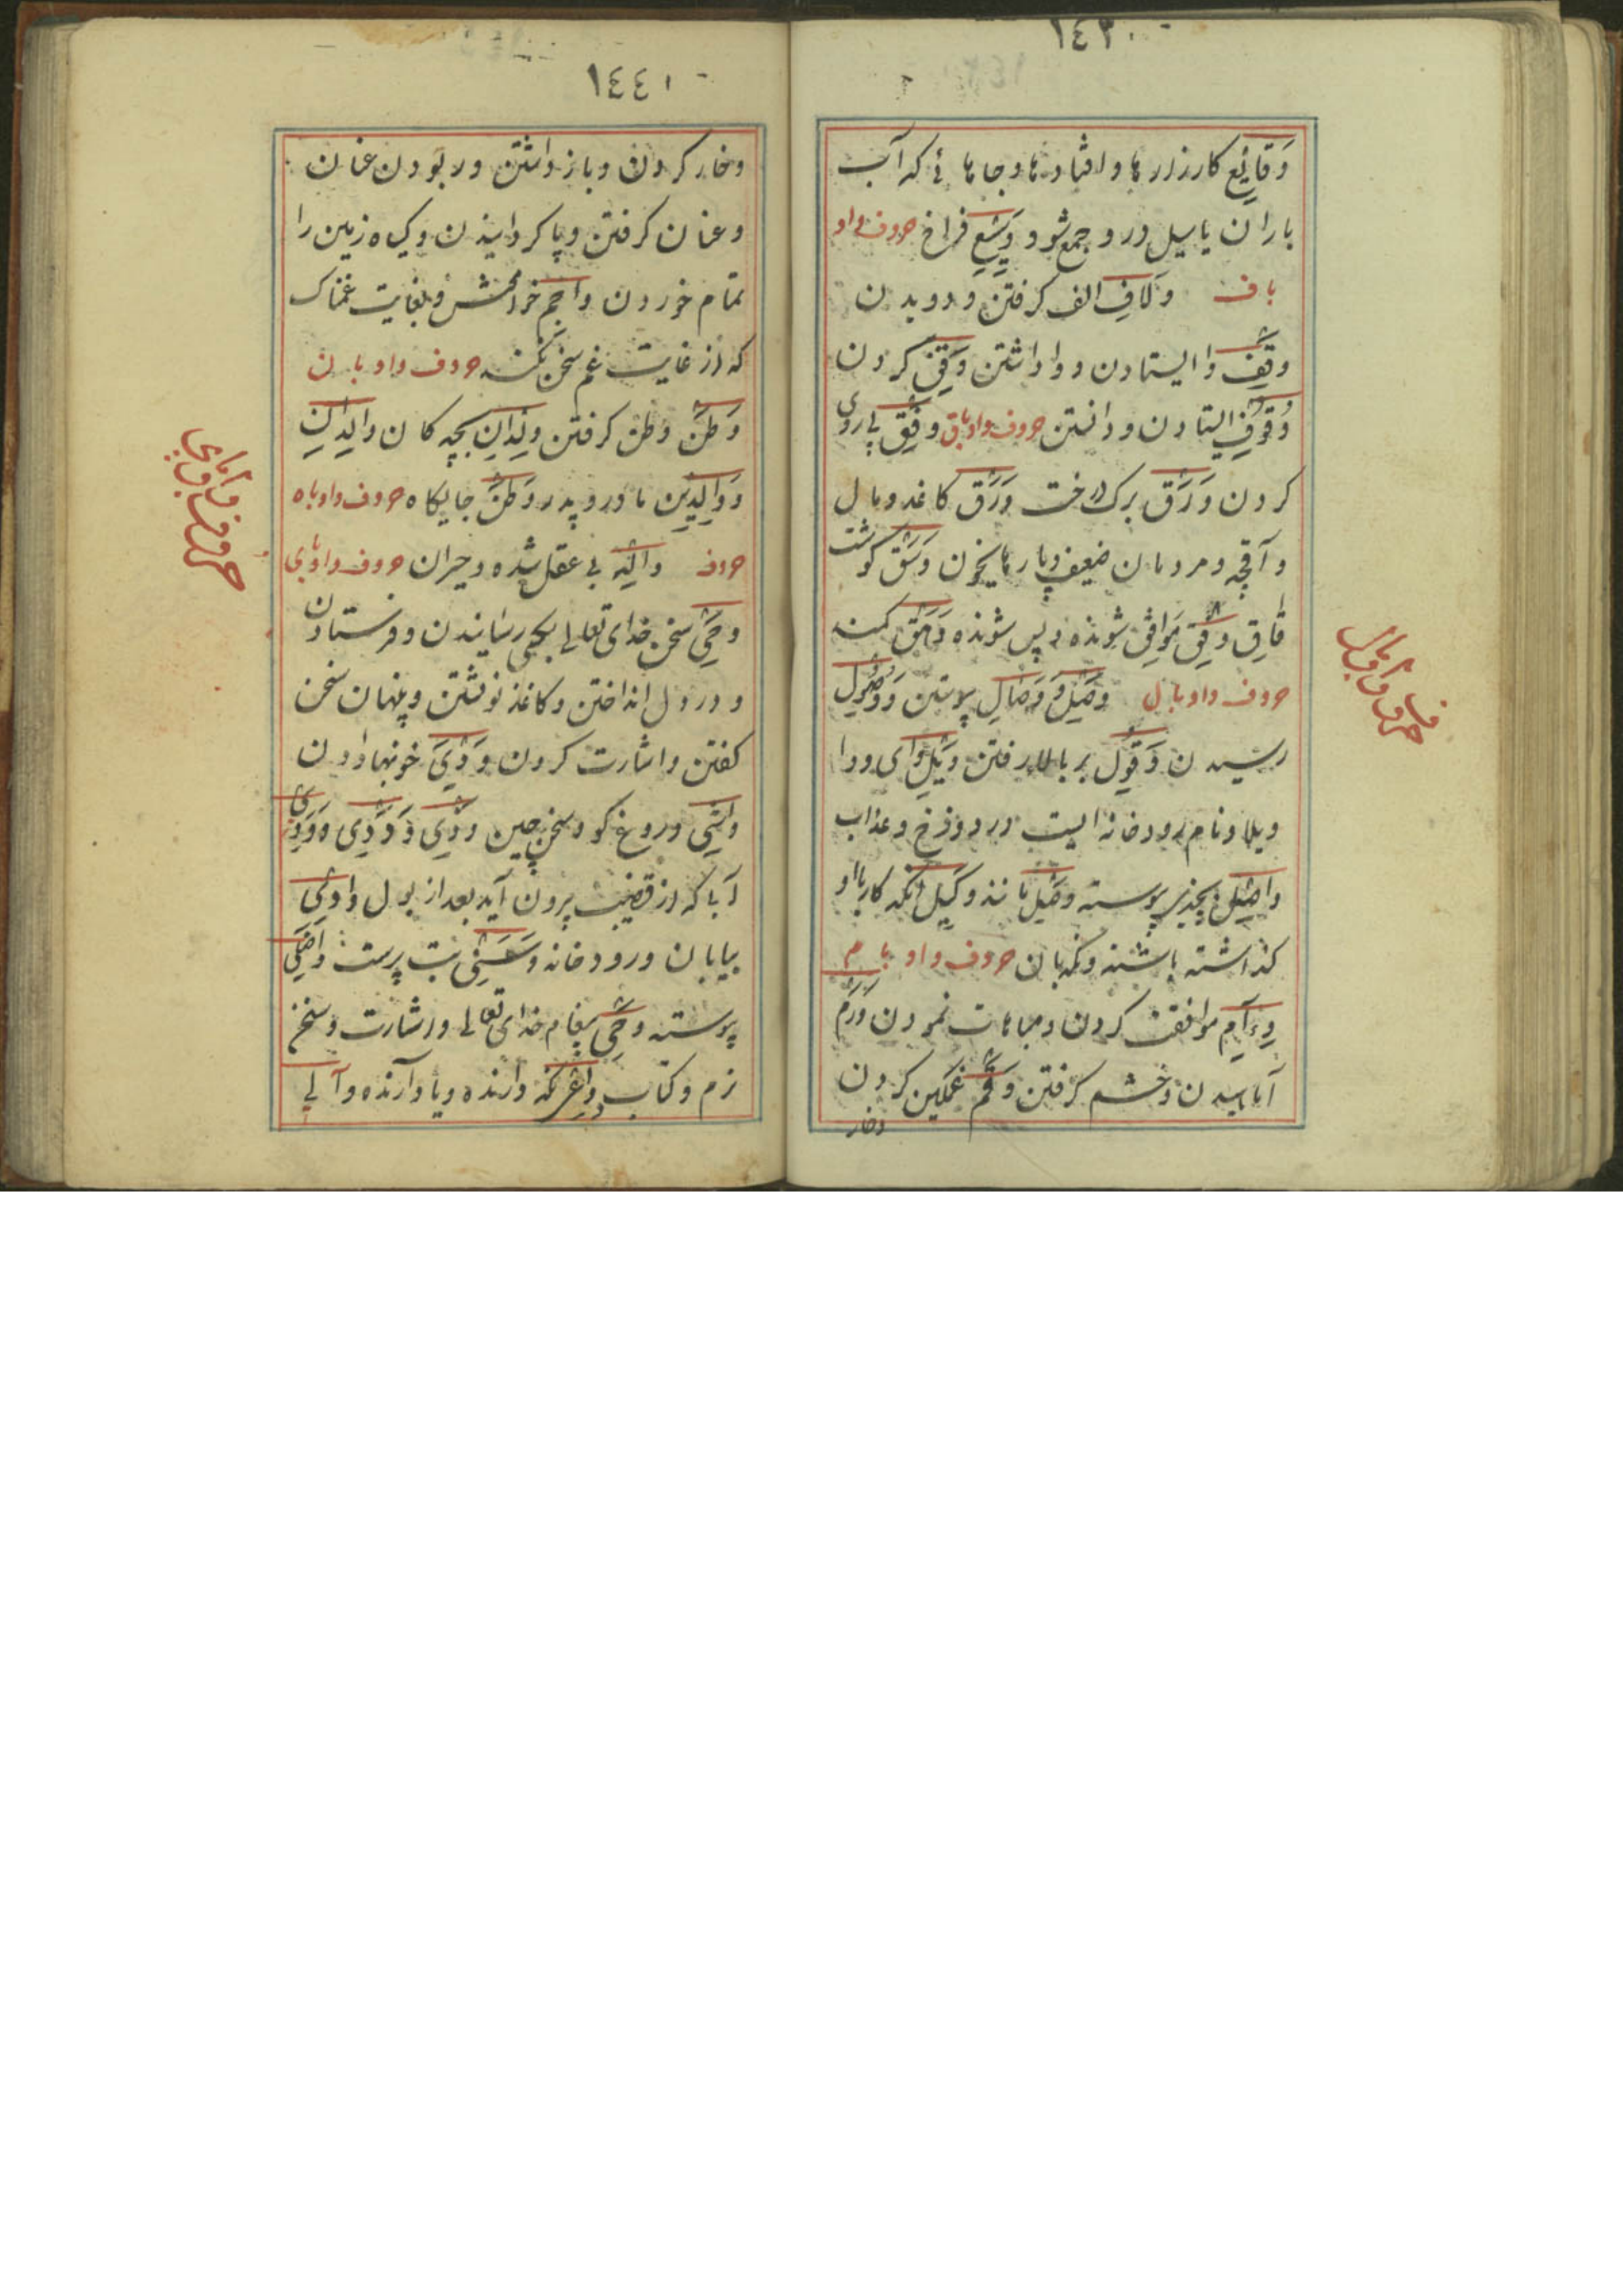 ١٤٣٠
وَقَائِع كارزارها و افتادنها و جاها ئے که آب
باران یا سیل درو جمع شود وَسِیع فراخ حروف واو
با ف وِلَافِ الف کرفتن و دویدن
وقف وا ایستادن و واداشتن وَقفِ کردن
وُقُوفِ ایستادن و دانستن حروف واو باق وفق
کردن وَرَق برک درخت وَرَق کاغد و مال
و آقچه و مردمان ضعیف و پارهای خون وَشَق کوشت
قاق وفق موافق شونده و پس شونده وَامِق
حروف واو با ل وَصل وَ وِصَال پیوستن وَ وُصُول
رسیدن وَقول بر بالا رفتن وَیل وای و وا
ویلا و نام رودخانه ایست در دوزخ و عذاب
واصل بچیزی پیوسته وصل مانند وکیل آنکه کار با او
کذاشته باشند و نکهبان حروف واو با م
وِءَام موافقت کردن و مباهات نمودن وَرَم
آماسیدن و خشم کرفتن وقم غمکین کردن
وخار
حروف واو
١٤٤٠
وخار کردن و باز داشتن و ربودن عنان
و عنان کرفتن و پا کردانیدن و کیاه زمین را
تمام خوردن واجم خوامش و بغایت غمناک
که از غایت غم سخن نکند حروف واو با ن
وَطن وطن کرفتن وِلدان بچه کان والدان
وَ وَالِدَین مادر و پدر وَطَن جایکاه حروف واو باه
حروف واله بی عقل شده و حیران حروف واو بای
وحی سخن خدای تعالی بکسی رسانیدن و فرستادن
و در دل انداختن و کاغذ نوشتن و پنهان سخن
کفتن و اشارت کردن وَ وَدی خونبها دادن
واشی دروغ کو و سخن چین وَدی وَ وَدِی
آبی که از قضیب برون آید بعد از بول وادی
بیابان و رودخانه وَثنی بت پرست
پیوسته وحی پیغام خدای تعالی و اشارت و سخن
نرم و کتاب واعی نکه دارنده و یاد آرنده و آلی